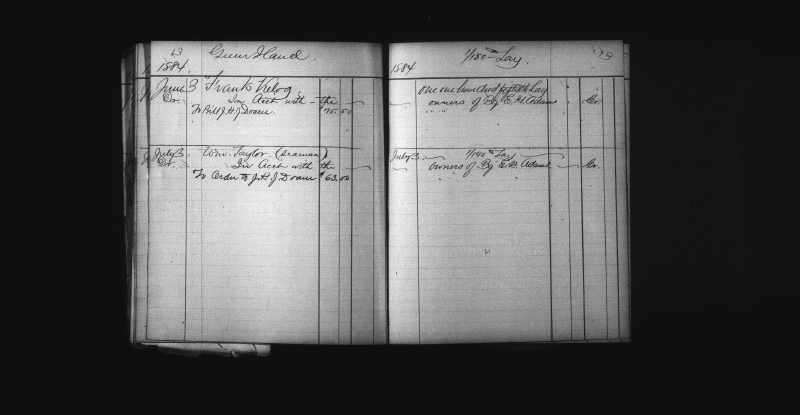 63
Green Hand.
1884.
June 3 Frank Kelog,
Dr. In Acct with the
To Bill J. H. J Doane 75.50
July 3 Wm. Taylor (Seaman)
Dr. In Acct with the
To Order to J. H. J Doane $63.00
1/150th Lay.
1884
one one hundred fiftieth Lay
owners of Bg E. H. Adams Cr.
July 3 1/140th Lay
owners of Bg E. H. Adams Cr.